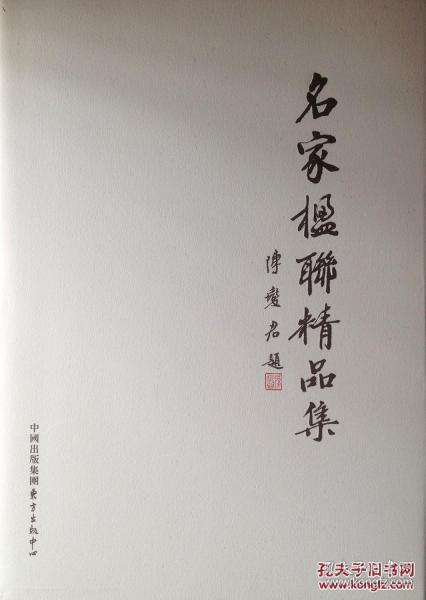 名家楹聯精品集
陳燮君題
中國出版集團 東方出版中心
孔夫子旧书网